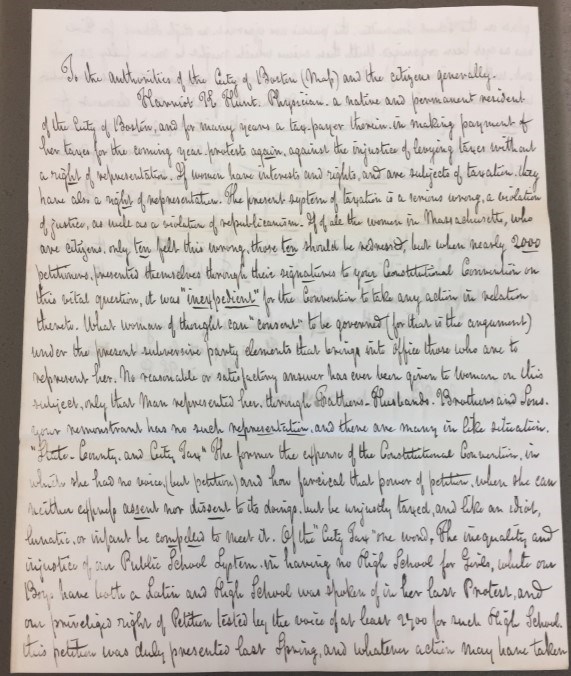 To the authorities of the City of Boston (Mass) and the citizens generally.
Harriot K Hunt. Physician. a native and permanent resident
of the City of Boston, and for many years a tax payer therein. in making payment of
her taxes for the coming year. protests again. against the injustice of levying taxes without
a right of representation. If women have interests and rights, and are subjects of taxation. they
have also a right of representation. The present system of taxation is a serious wrong, a violation
of justice, as well as a violation of republicanism. If of all the women in Massachusetts, who
are citizens, only ten felt this wrong, those ten should be redressed, but when nearly 2000
petitioners, presented themselves through their signatures to your Constitutional Convention on
this vital question, it was "inexpedient" for the Convention to take any action in relation
thereto. What woman of thought can "consent" to be governed (for that is the argument)
under the present subversive party elements that brings into office those who are to
represent her. No reasonable or satisfactory answer has ever been given to Woman on this
subject, only that Man represented her. through Fathers. Husbands. Brothers and Sons.
your remonstrant has no such representation, and there are many in like situation.
"State. County. and City Tax" The former the expense of the Constitutional Convention. in
which she had no voice, (but petition) and how farcical that power of petition, when she can
neither express assent nor dissent to its doings. but be unjustly taxed, and like an idiot,
lunatic, or infant be compelled to meet it. Of the "City Tax" one word, The inequality and
injustice of our Public School System. in having no High School for Girls, whilst our
Boys have both a Latin and High School was spoken of in her last Protest, and
our priviliged right of Petition tested by the voice of at least 2700 for such High School.
this petition was duly presented last Spring, and whatever action may have taken